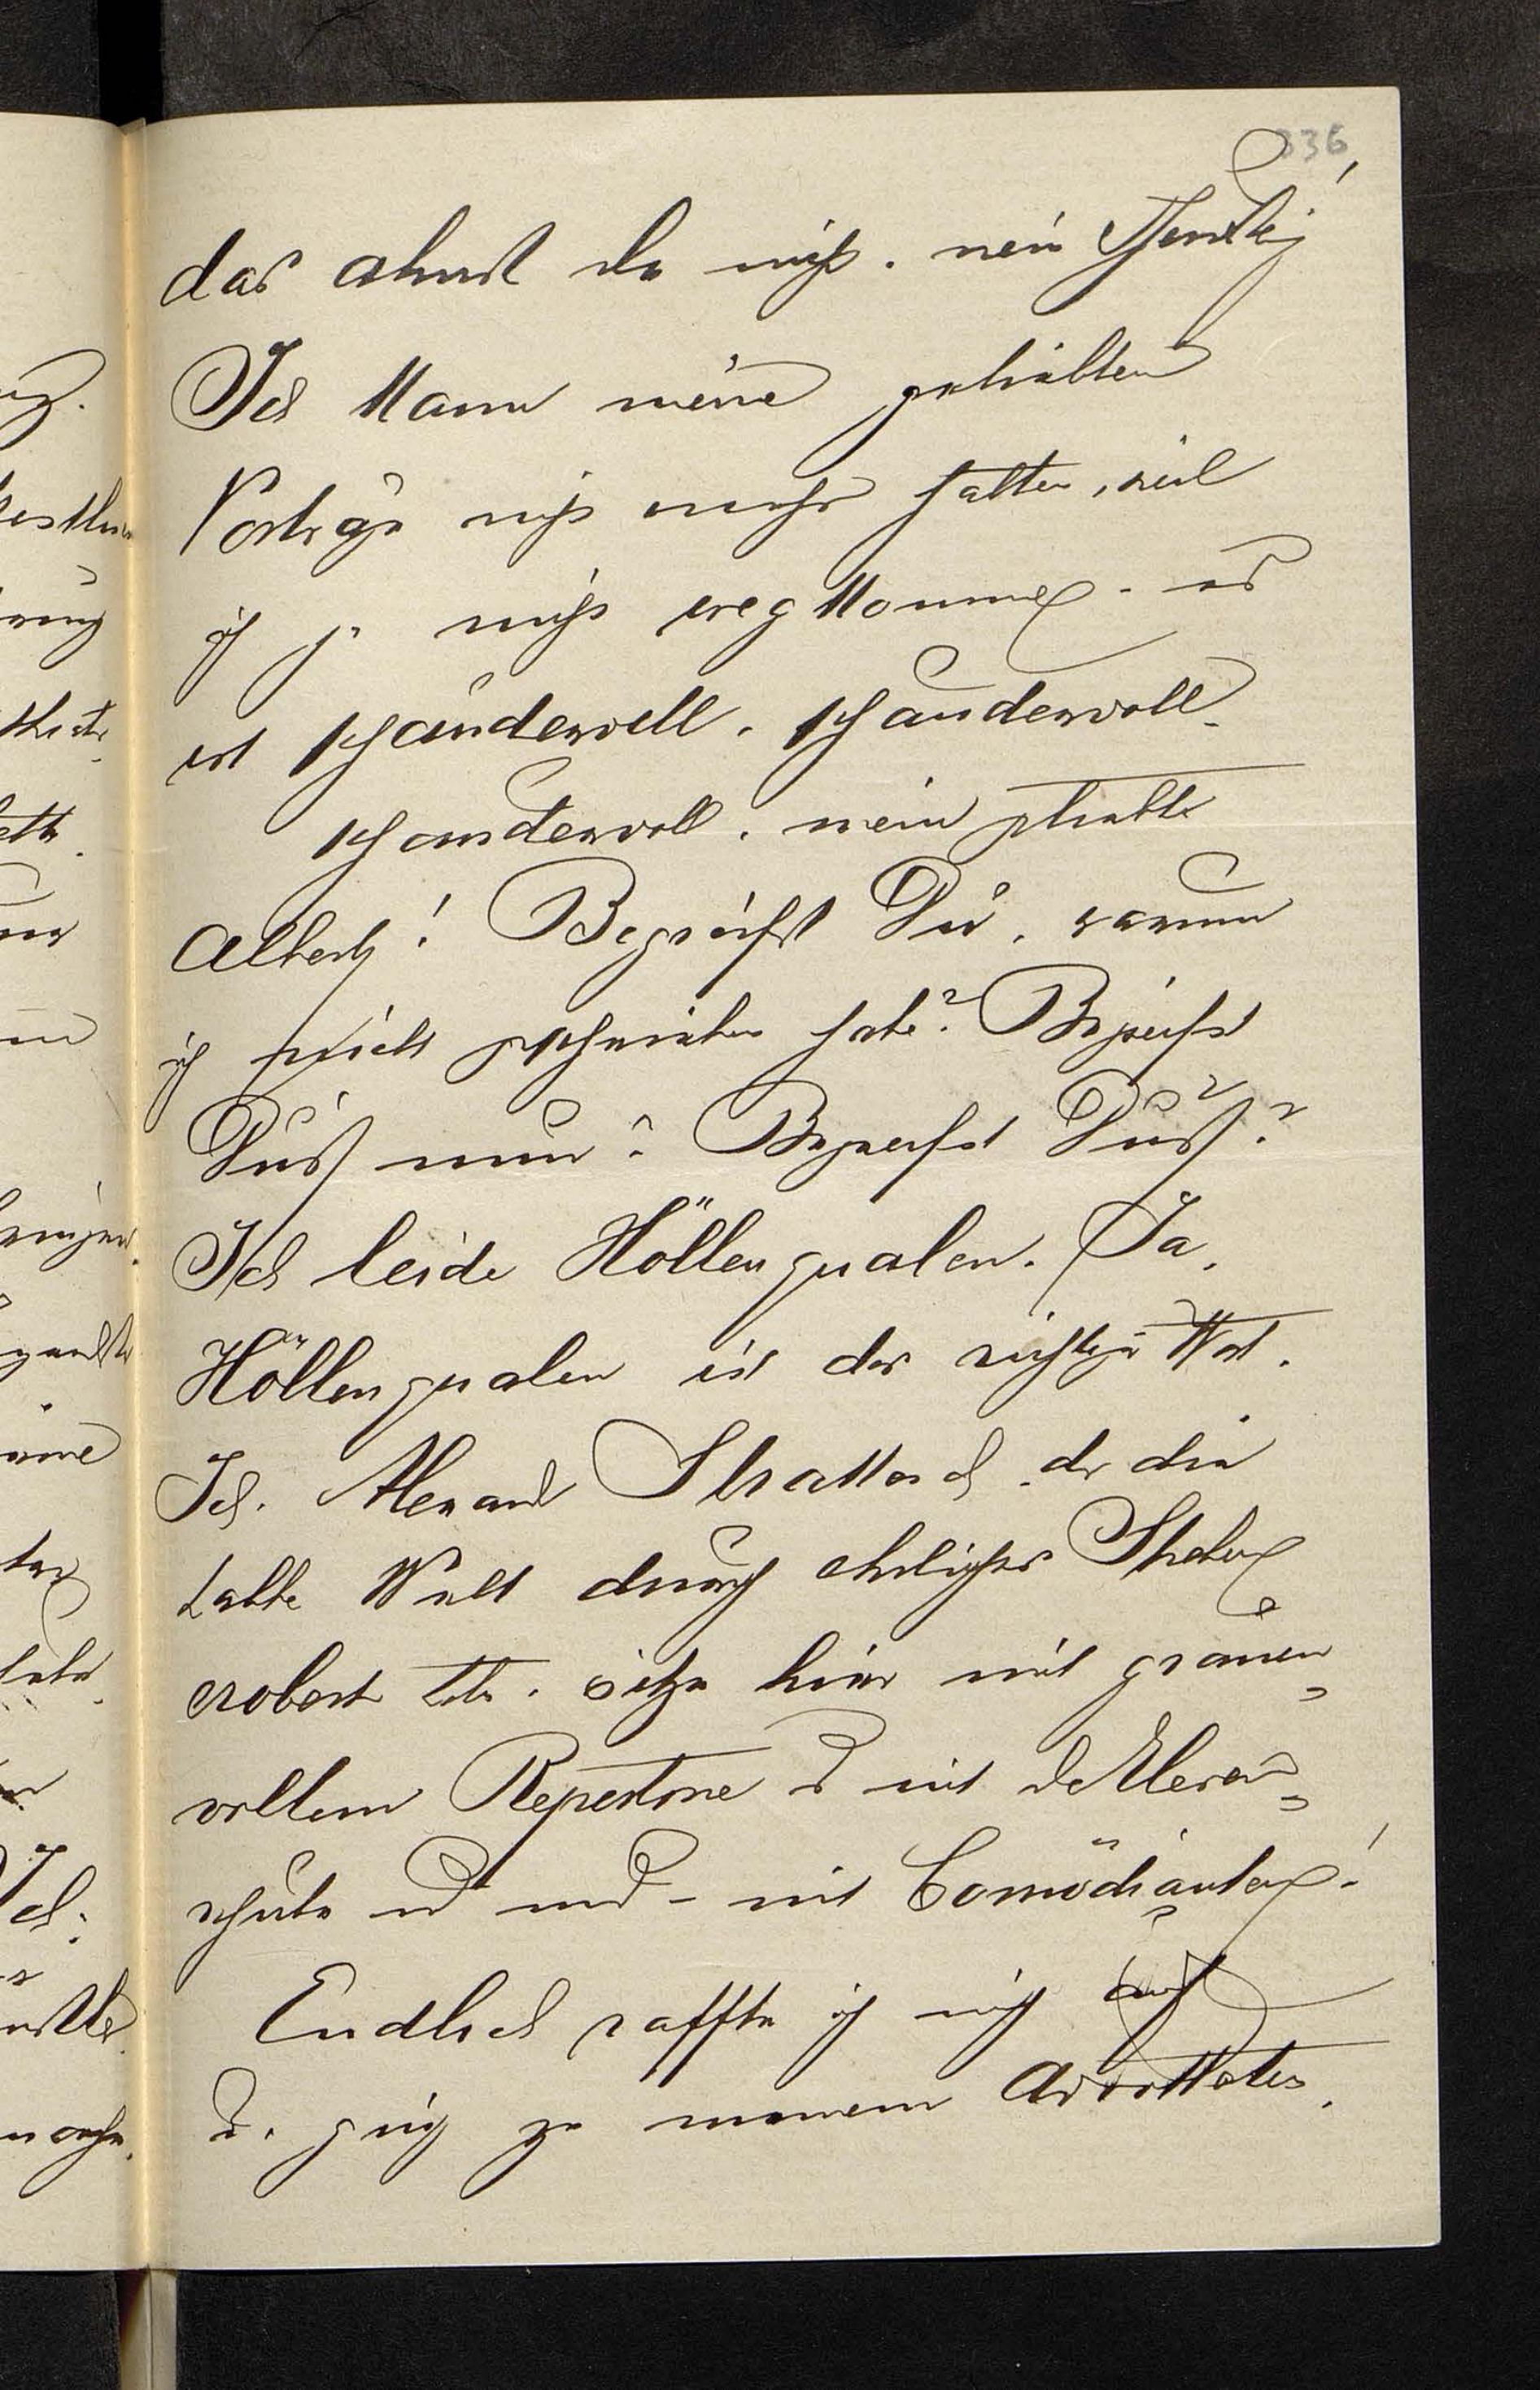 336
das ahnst du nicht, nein
Ich kann meine geliebten
Vorträge nicht mehr halten, weil
ich ja nicht wegkomme. es
ist schaudervoll, schaudervoll,
schaudervoll, mein geliebter
Albert! Begreifst Du, warum
ich nicht geschrieben habe? Begreifst
Du's nun? Begreifst Du's?
Ich leide Höllenqualen. Ja,
Höllenqualen ist das richtige Wort.
Ich, Alexander Strakosch, der die
halbe Welt durch ehrliches Streben
erobert habe, sitze hier mit grauen-
vollem Repertoire u mit
schule und und – mit Comödianten!
Endlich raffte ich mich auf
u. ging zu meinem Advokaten,